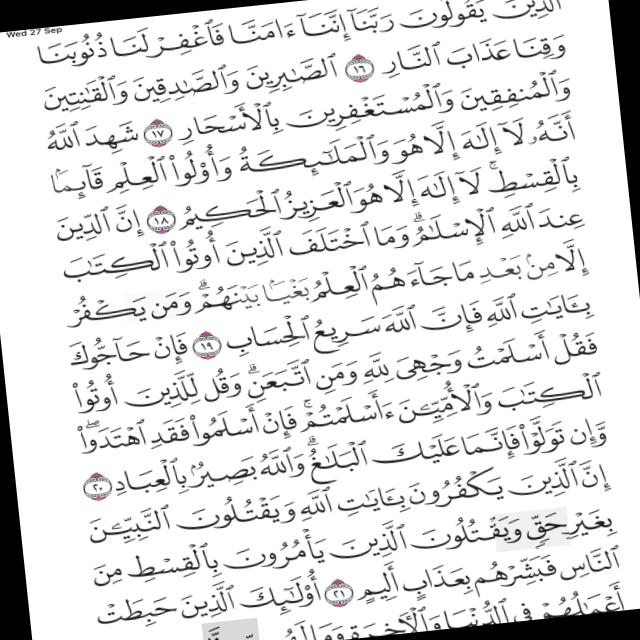 Wed 27 Sep
ٱلَّذِينَ يَقُولُونَ رَبَّنَآ إِنَّنَآ ءَامَنَّا فَٱغْفِرْ لَنَا ذُنُوبَنَا
وَقِنَا عَذَابَ ٱلنَّارِ ١٦ ٱلصَّـٰبِرِينَ وَٱلصَّـٰدِقِينَ وَٱلْقَـٰنِتِينَ
وَٱلْمُنفِقِينَ وَٱلْمُسْتَغْفِرِينَ بِٱلْأَسْحَارِ ١٧ شَهِدَ ٱللَّهُ
أَنَّهُۥ لَآ إِلَـٰهَ إِلَّا هُوَ وَٱلْمَلَـٰٓئِكَةُ وَأُو۟لُوا۟ ٱلْعِلْمِ قَآئِمًۢا
بِٱلْقِسْطِ ۚ لَآ إِلَـٰهَ إِلَّا هُوَ ٱلْعَزِيزُ ٱلْحَكِيمُ ١٨ إِنَّ ٱلدِّينَ
عِندَ ٱللَّهِ ٱلْإِسْلَـٰمُ ۗ وَمَا ٱخْتَلَفَ ٱلَّذِينَ أُوتُوا۟ ٱلْكِتَـٰبَ
إِلَّا مِنۢ بَعْدِ مَا جَآءَهُمُ ٱلْعِلْمُ بَغْيًۢا بَيْنَهُمْ ۗ وَمَن يَكْفُرْ
بِـَٔايَـٰتِ ٱللَّهِ فَإِنَّ ٱللَّهَ سَرِيعُ ٱلْحِسَابِ ١٩ فَإِنْ حَآجُّوكَ
فَقُلْ أَسْلَمْتُ وَجْهِىَ لِلَّهِ وَمَنِ ٱتَّبَعَنِ ۗ وَقُل لِّلَّذِينَ أُوتُوا۟
ٱلْكِتَـٰبَ وَٱلْأُمِّيِّـۧنَ ءَأَسْلَمْتُمْ ۚ فَإِنْ أَسْلَمُوا۟ فَقَدِ ٱهْتَدَوا۟ ۖ
وَّإِن تَوَلَّوْا۟ فَإِنَّمَا عَلَيْكَ ٱلْبَلَـٰغُ ۗ وَٱللَّهُ بَصِيرٌۢ بِٱلْعِبَادِ ٢٠
إِنَّ ٱلَّذِينَ يَكْفُرُونَ بِـَٔايَـٰتِ ٱللَّهِ وَيَقْتُلُونَ ٱلنَّبِيِّـۧنَ
بِغَيْرِ حَقٍّ وَيَقْتُلُونَ ٱلَّذِينَ يَأْمُرُونَ بِٱلْقِسْطِ مِنَ
ٱلنَّاسِ فَبَشِّرْهُم بِعَذَابٍ أَلِيمٍ ٢١ أُو۟لَـٰٓئِكَ ٱلَّذِينَ حَبِطَتْ
أَعْمَـٰلُهُمْ فِى ٱلدُّنْيَا وَٱلْـَٔاخِرَةِ وَمَا لَهُم